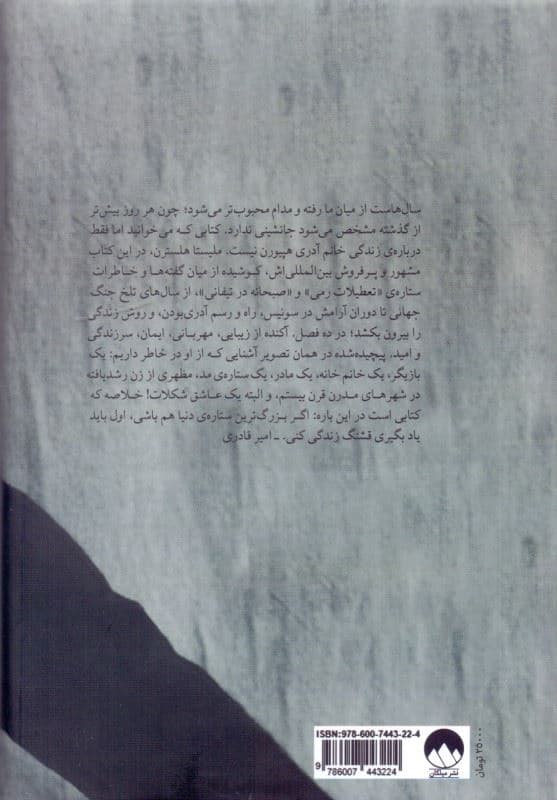 سال‌هاست از میان ما رفته و مدام محبوب‌تر می‌شود؛ چون هر روز بیش‌تر
از گذشته مشخص می‌شود جانشینی ندارد. کتابی که می‌خوانید اما فقط
درباره‌ی زندگی خانم آدری هیپورن نیست. ملیستا هلسترن، در این کتاب
مشهور و پرفروش بین‌المللی‌اش، کوشیده از میان گفته‌ها و خاطرات
ستاره‌ی «تعطیلات رمی» و «صبحانه در تیفانی»، از سال‌های تلخ جنگ
جهانی تا دوران آرامش در سوئیس، راه و رسم آدری‌بودن، و روش زندگی
را بیرون بکشد؛ در ده فصل. آکنده از زیبایی، مهربانی، ایمان، سرزندگی
و امید. پیچیده‌شده در همان تصویر آشنایی که از او در خاطر داریم: یک
بازیگر، یک خانم خانه، یک مادر، یک ستاره‌ی مد، مظهری از زن رشدیافته
در شهرهای مدرن قرن بیستم، و البته یک عاشق شکلات! خلاصه که
کتابی است در این باره: اگر بزرگ‌ترین ستاره‌ی دنیا هم باشی، اول باید
یاد بگیری قشنگ زندگی کنی. ـ امیر قادری
ISBN:978-600-7443-22-4
9 786007 443224
نشر میلکان
۲۵۰۰۰ تومان